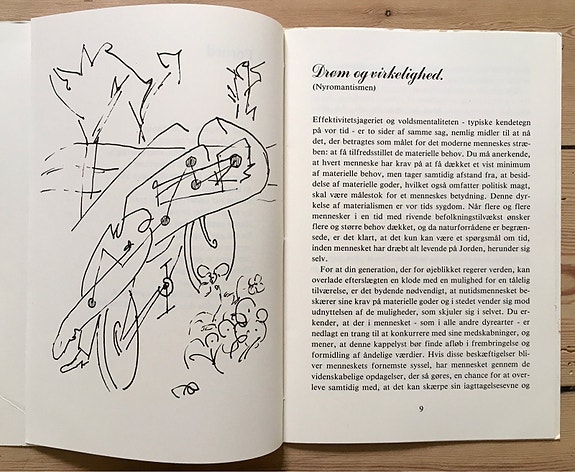 Drøm og virkelighed.
(Nyromantismen)
Effektivitetsjageriet og voldsmentaliteten - typiske kendetegn
på vor tid - er to sider af samme sag, nemlig midler til at nå
det, der betragtes som målet for det moderne menneskes stræ-
ben: at få tilfredsstillet de materielle behov. Du må anerkende,
at hvert menneske har krav på at få dækket et vist minimum
af materielle behov, men tager samtidig afstand fra, at besid-
delse af materielle goder, hvilket også omfatter politisk magt,
skal være målestok for et menneskes betydning. Denne dyr-
kelse af materialismen er vor tids sygdom. Når flere og flere
mennesker i en tid med rivende befolkningstilvækst ønsker
flere og større behov dækket, og da naturforrådene er begræn-
sede, er det klart, at det kun kan være et spørgsmål om tid,
inden mennesket har dræbt alt levende på Jorden, herunder sig
selv.
For at din generation, der for øjeblikket regerer verden, kan
overlade efterslægten en klode med en mulighed for en tålelig
tilværelse, er det bydende nødvendigt, at nutidsmennesket be-
skærer sine krav på materielle goder og i stedet vender sig mod
udnyttelsen af de muligheder, som skjuler sig i selvet. Du er-
kender, at der i mennesket - som i alle andre dyrearter - er
nedlagt en trang til at konkurrere med sine medskabninger, og
mener, at denne kappelyst bør finde afløb i frembringelse og
formidling af åndelige værdier. Hvis disse beskæftigelser bli-
ver menneskets fornemste syssel, har mennesket gennem de
videnskabelige opdagelser, der så gøres, en chance for at over-
leve samtidig med, at det kan skærpe sin iagttagelsesevne og
9